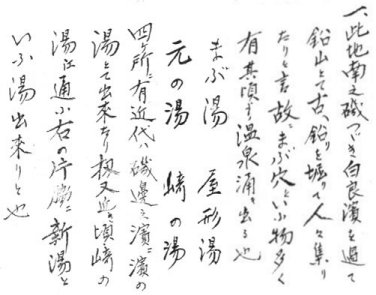 一、此地南之磯つゞき白良濱を過て
鉛山とて古、鉛りを堀りて人々集り
たりと言故にまぶ穴といふ物多く
有其頃より温泉涌き出る也
まぶ湯　屋形湯
元の湯　崎の湯
四ヶ所に有近代ハ磯邊之濱に濱の
湯とて出来たり扨又近き頃崎の
湯江通ふ右の片原に新湯と
いふ湯出来りと也